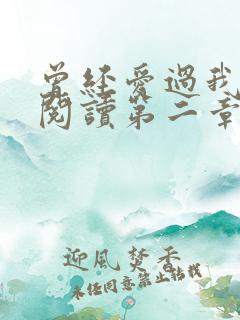 曾經愛過我
閱讀第二章
迎風焚香
未經同意禁止轉載